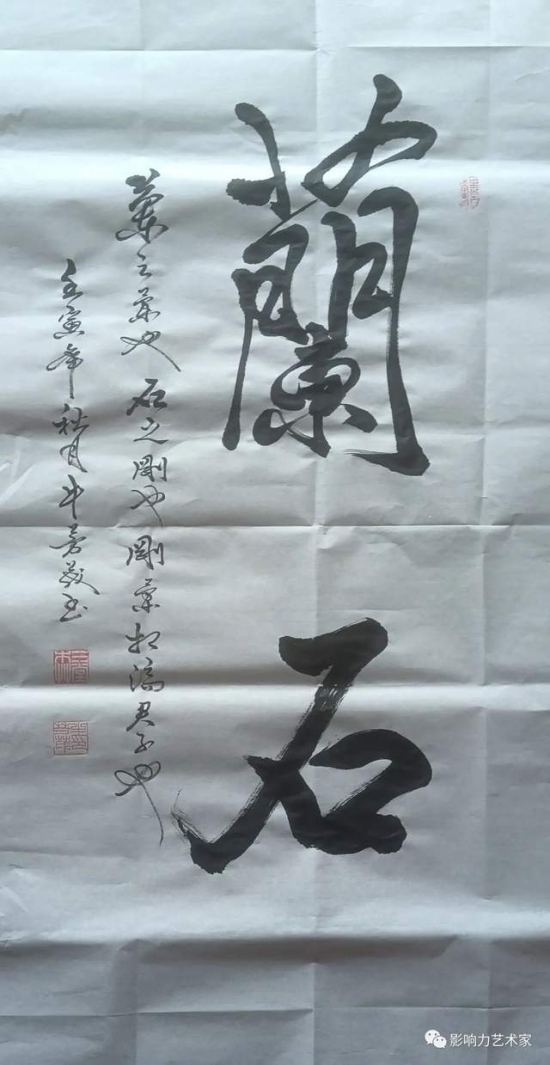 蘭石
蘭之柔也石之剛也剛柔相濟君子也
壬寅年秋月牛芳书
影响力艺术家